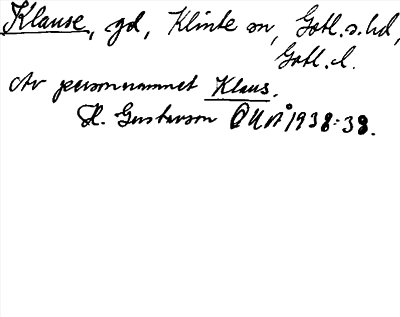 Klause, gd, Klinte sn, Gotl. s. hd,
Gotl. l.
Av personnamnet Klaus.
H. Gustavson OUÅ 1938:38.